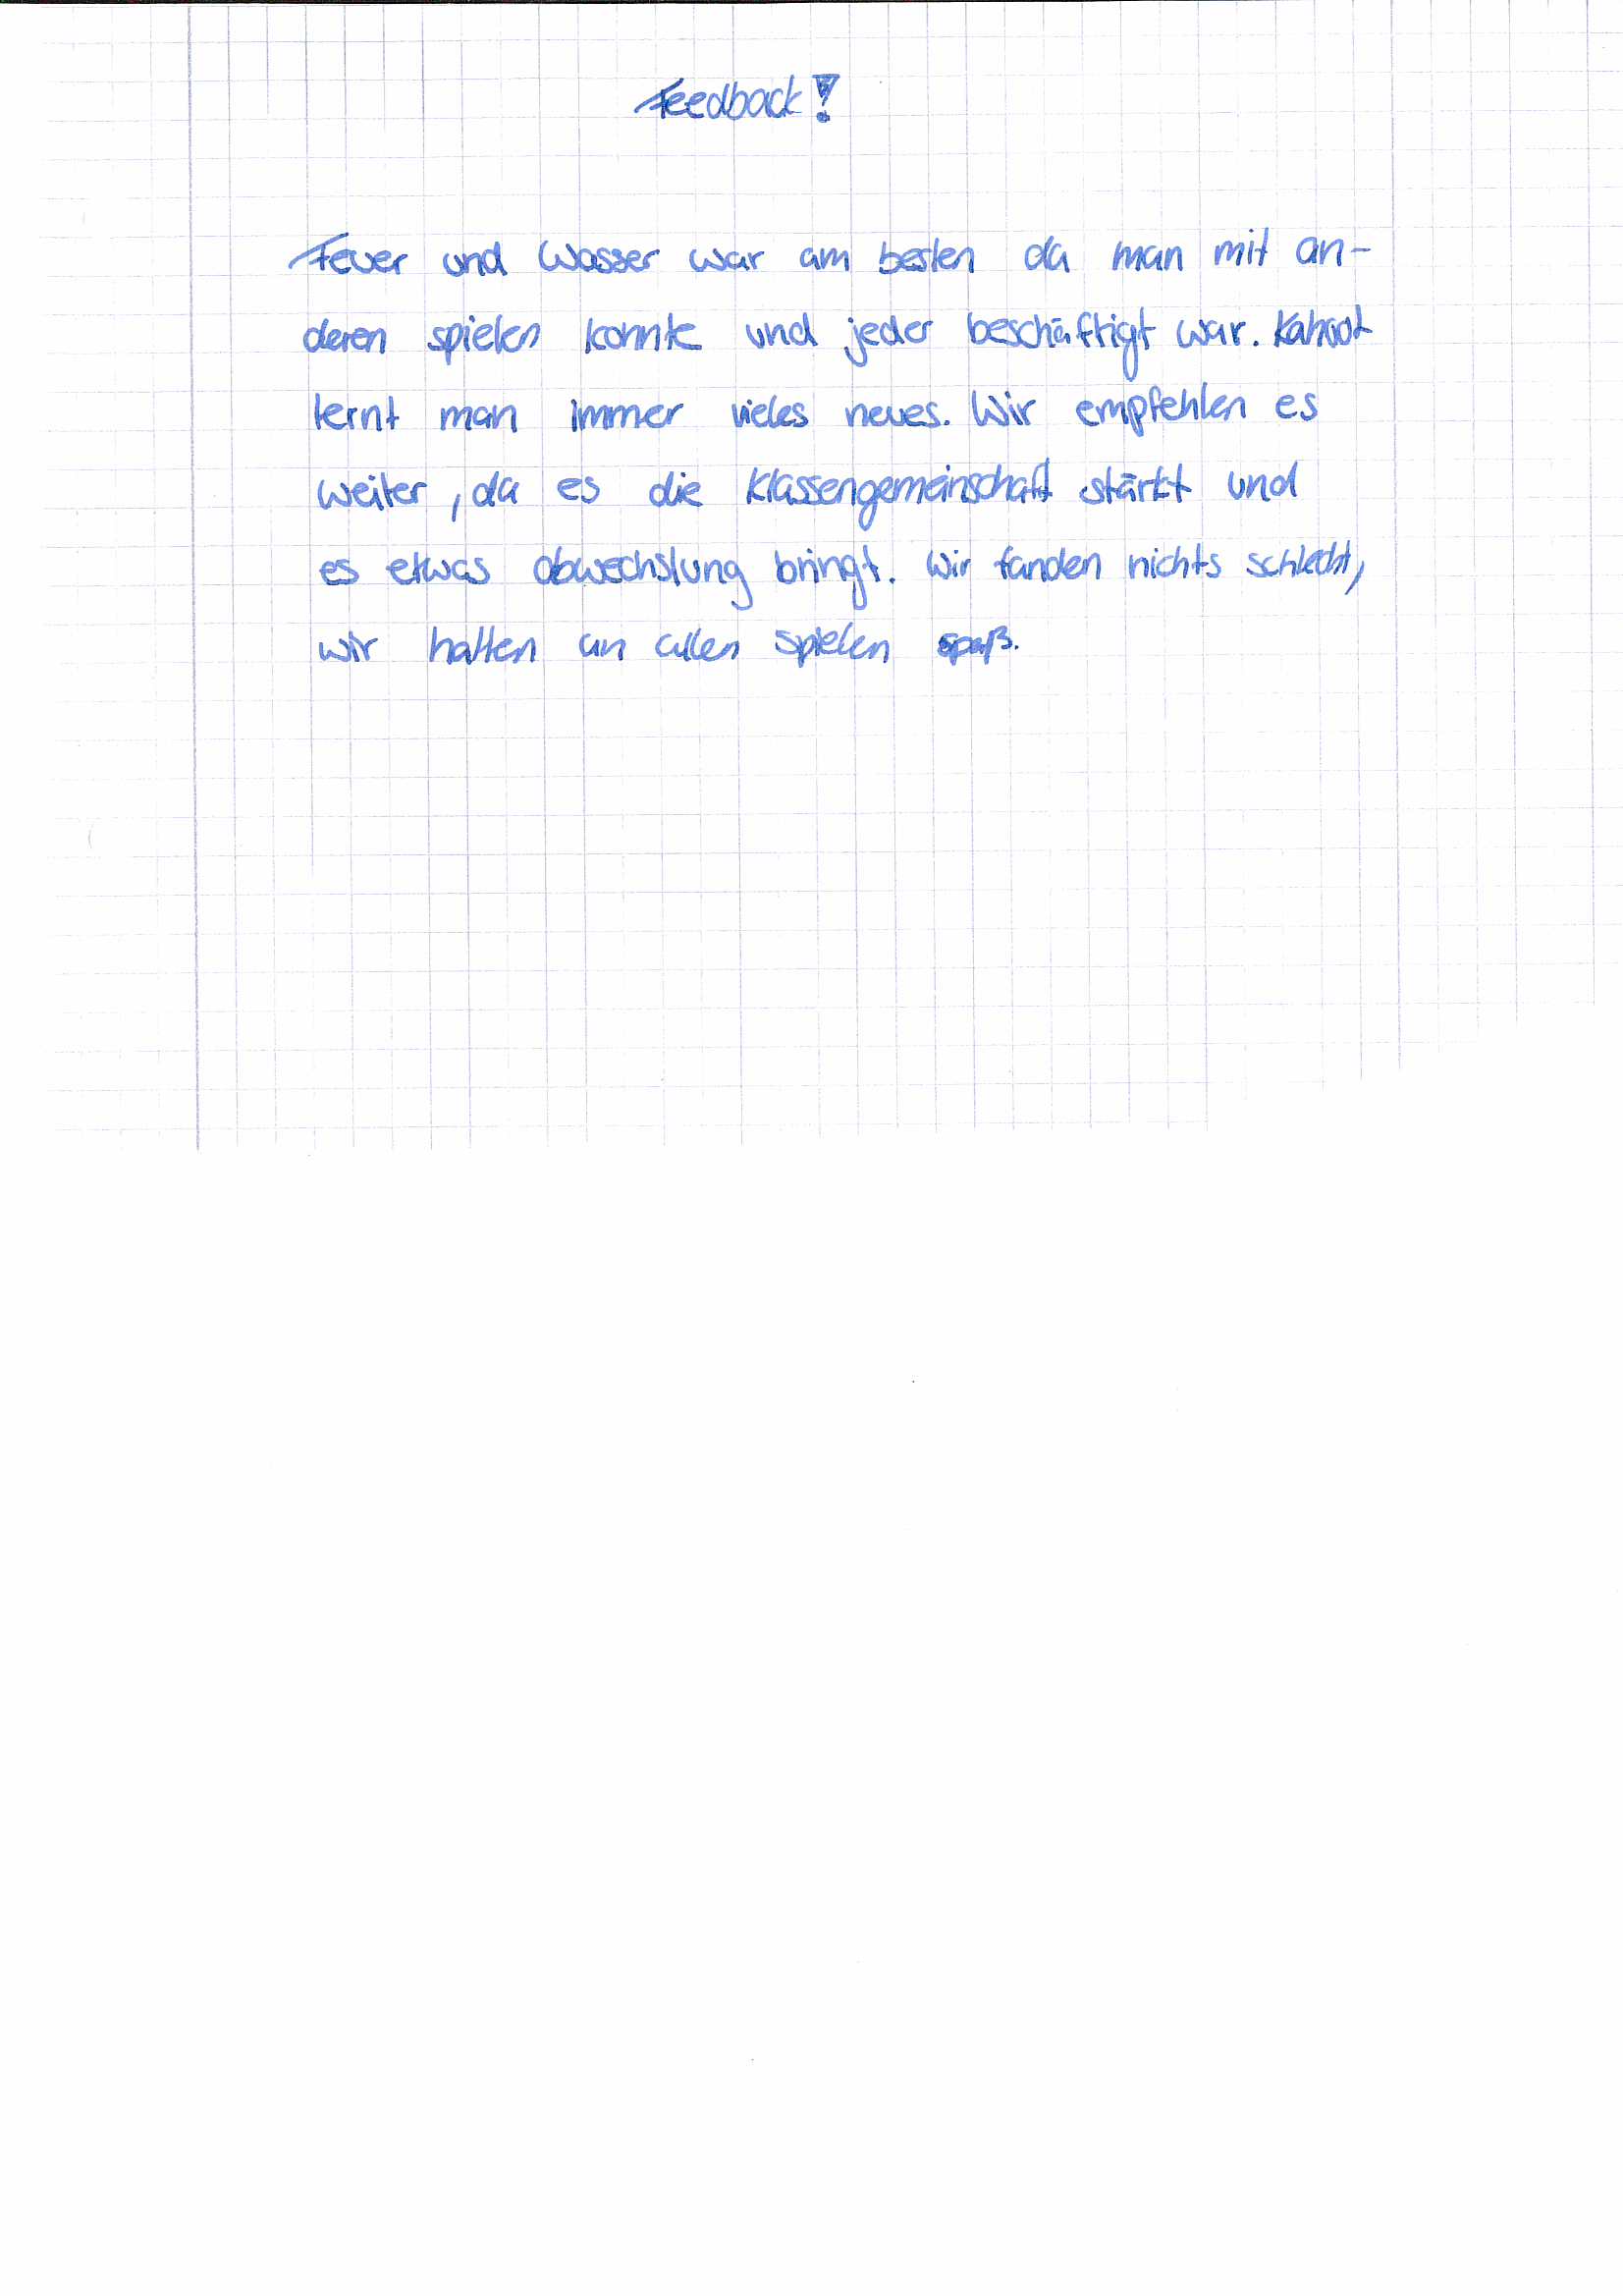 Feedback!
Feuer und Wasser war am besten da man mit an-
deren spielen konnte und jeder beschäftigt war. Kahoot
lernt man immer vieles neues. Wir empfehlen es
weiter, da es die Klassengemeinschaft stärkt und
es etwas abwechslung bringt. Wir fanden nichts schlecht,
wir hatten an allen spielen spaß.